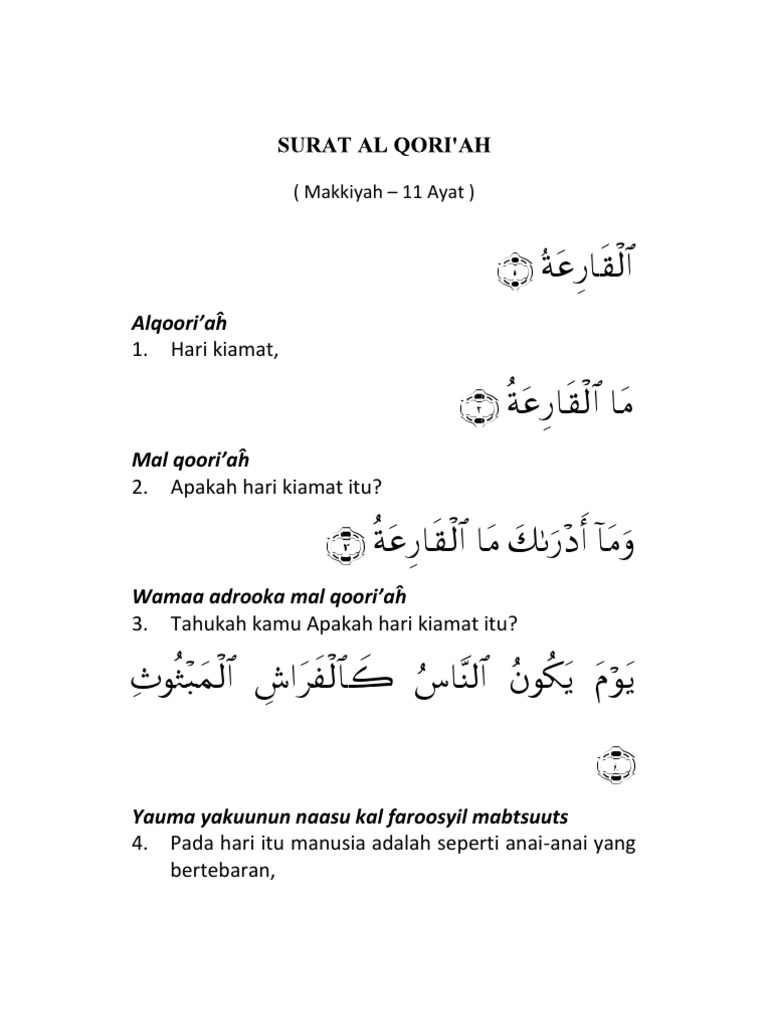 SURAT AL QORI'AH
( Makkiyah – 11 Ayat )
ٱلْقَارِعَةُ ۝
Alqoori’aĥ
1. Hari kiamat,
مَا ٱلْقَارِعَةُ ۝٢
Mal qoori’aĥ
2. Apakah hari kiamat itu?
وَمَآ أَدْرَىٰكَ مَا ٱلْقَارِعَةُ ۝٣
Wamaa adrooka mal qoori’aĥ
3. Tahukah kamu Apakah hari kiamat itu?
يَوْمَ يَكُونُ ٱلنَّاسُ كَٱلْفَرَاشِ ٱلْمَبْثُوثِ
۝٤
Yauma yakuunun naasu kal faroosyil mabtsuuts
4. Pada hari itu manusia adalah seperti anai-anai yang
bertebaran,